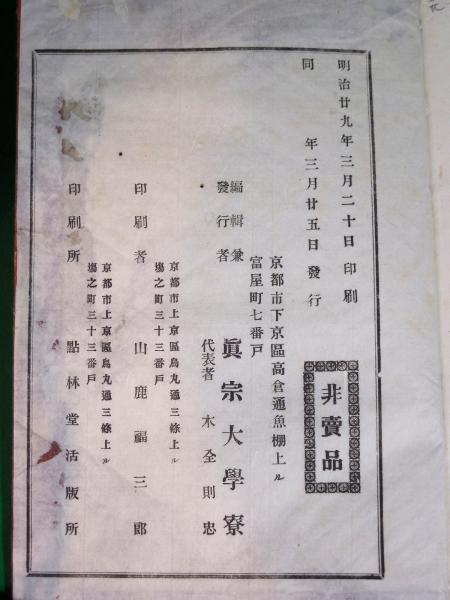 明治廿九年三月二十日印刷
同年三月廿五日發行
非賣品
京都市下京區高倉通魚棚上ル
富屋町七番戸
編輯兼
發行者
眞宗大學寮
代表者 木全則忠
京都市上京區烏丸通三條上ル
塲之町三十三番戸
印刷者 山鹿福三郎
京都市上京區烏丸通三條上ル
塲之町三十三番戸
印刷所 點林堂活版所